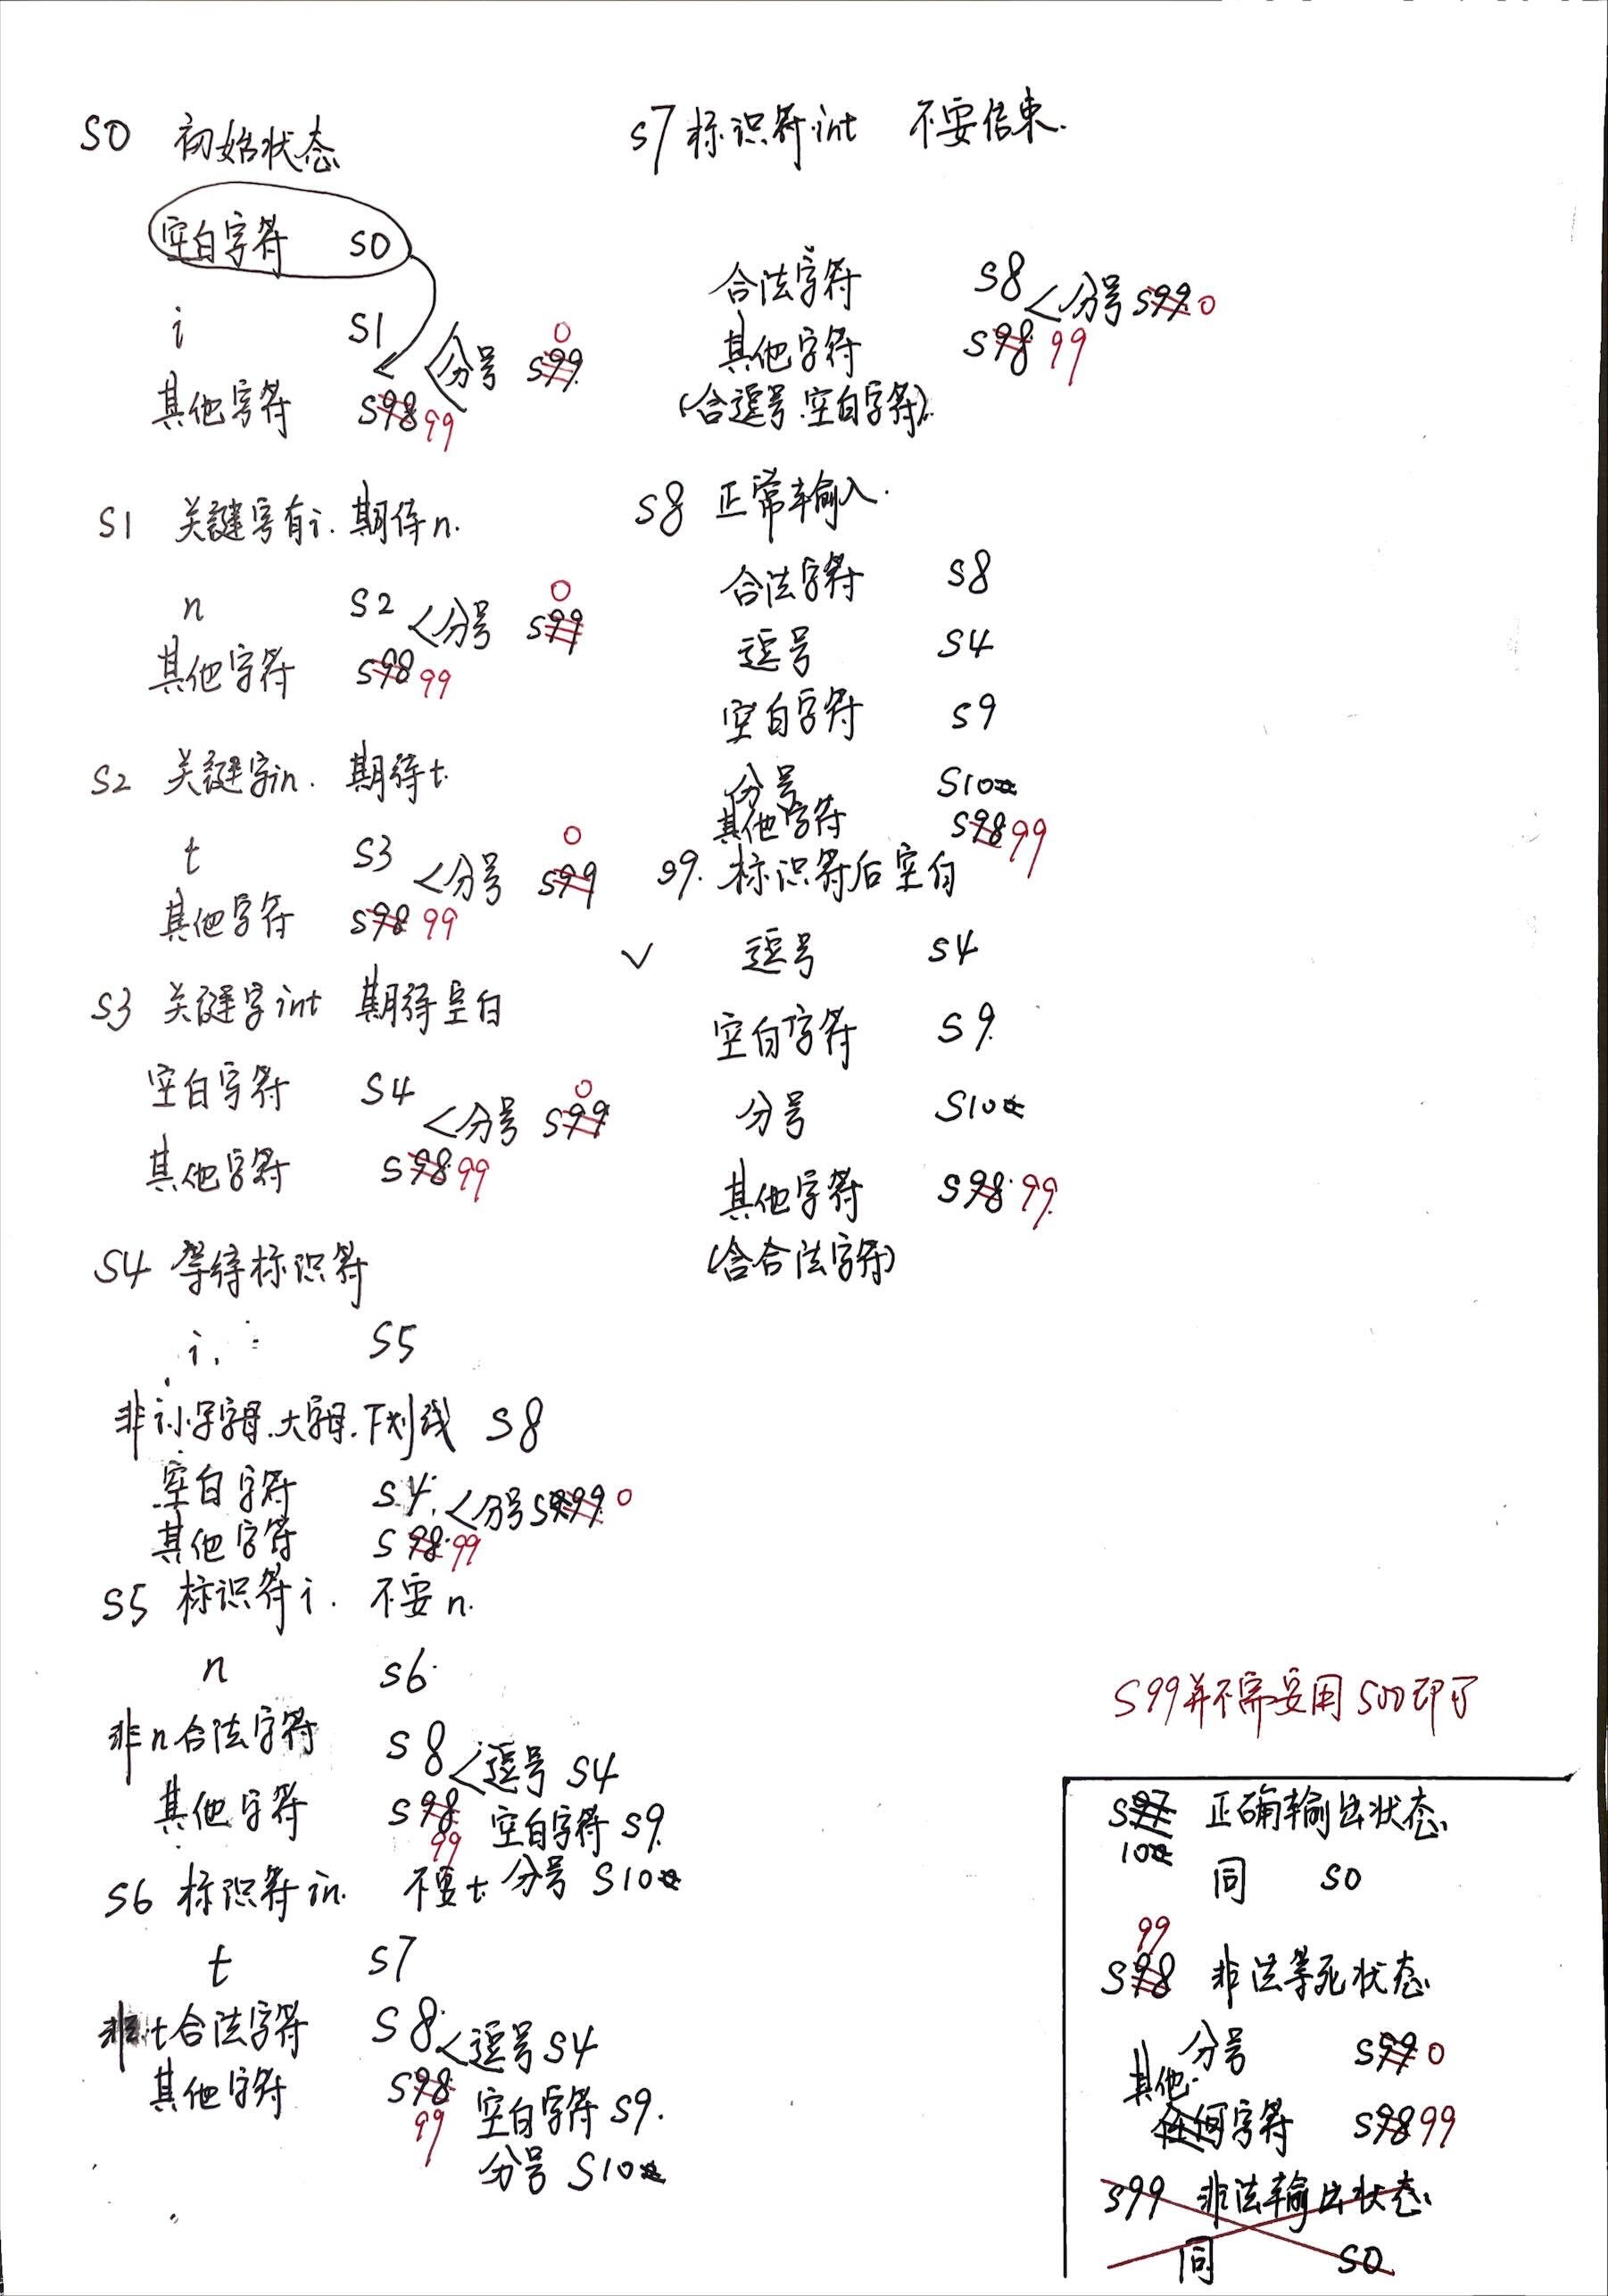 S0 初始状态
空白字符 S0
i S1
分号 S99 0
其他字符 S98 99
S1 关键字有i. 期待n.
n S2
分号 S99 0
其他字符 S98 99
S2 关键字in. 期待t.
t S3
分号 S99 0
其他字符 S98 99
S3 关键字int 期待空白
空白字符 S4
分号 S99 0
其他字符 S98 99
S4 等待标识符
i. S5
非i小写字母.大字母.下划线 S8
空白字符 S4
分号 S99 0
其他字符 S98 99
S5 标识符i. 不要n.
n S6
非n合法字符 S8
逗号 S4
其他字符 S98 99
空白字符 S9
分号 S10
S6 标识符in. 不要t
t S7
非t合法字符 S8
逗号 S4
其他字符 S98 99
空白字符 S9.
分号 S10
S7 标识符int 不要结束.
合法字符 S8
分号 S99 0
其他字符 S98 99
(含逗号.空白字符).
S8 正常输入.
合法字符 S8
逗号 S4
空白字符 S9
分号 S10
其他字符 S98 99
S9. 标识符后空白
逗号 S4
空白字符 S9.
分号 S10
其他字符 S98 99.
(含合法字符)
S99并不需要用S00即可
S97 正确输出状态
10
同 S0
99
S98 非法等死状态
分号 S99 0
其他
任何字符 S98 99
S99 非法输出状态
同 S0